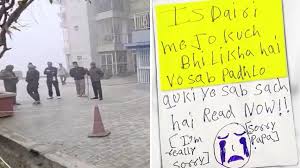 Is Dairi
me Jo Kuch
Bhi Likha hai
vo sab Padhlo
quki ye sab sach
hai Read Now!!
[I'm really sorry]
[Sorry Papa]